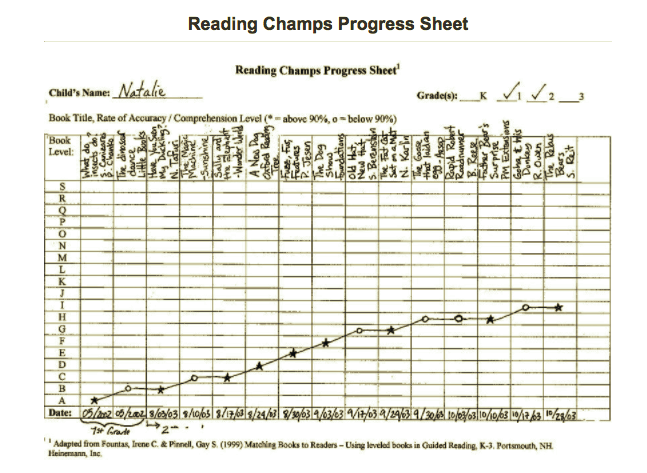 Reading Champs Progress Sheet
Reading Champs Progress Sheet¹
Child's Name: Natalie
Grade(s): __K ✓1 ✓2 __3
Book Title, Rate of Accuracy / Comprehension Level (* = above 90%, o = below 90%)
Book Level:
What do insects do?
The dinosaur dance
Little Books
Have You Seen My Duckling?
N. Tafuri
The Magic Machine
-Sunshine
Sally and the
-Wonder World
A New Dog
Guided Reading
Tree
Fuzz, Fuz,
The Dog Show
Foundations
Old Hat, New Hat
S. Berenstain
The Fat Cat Sat on the Mat
N. Karlin
The Goose that laid an egg-
Aesop
Rapid Robert Roadrunner
B. Reese
Father Bear's Surprise
PM Extensions
Gator & His Dunkey
R. Owen
The Rebus Bears
S. Reit
S
R
Q
P
O
N
M
L
K
J
I
H
G
F
E
D
C
B
A
Date: 05/2002 05/2002 8/03/03 8/10/03 8/17/03 8/24/03 8/30/03 9/03/03 9/17/03 9/29/03 9/30/03 10/03/03 10/10/03 10/17/03 10/28/03
1st Grade → 2
¹ Adapted from Fountas, Irene C. & Pinnell, Gay S. (1999) Matching Books to Readers – Using leveled books in Guided Reading, K-3. Portsmouth, NH.
Heinemann, Inc.